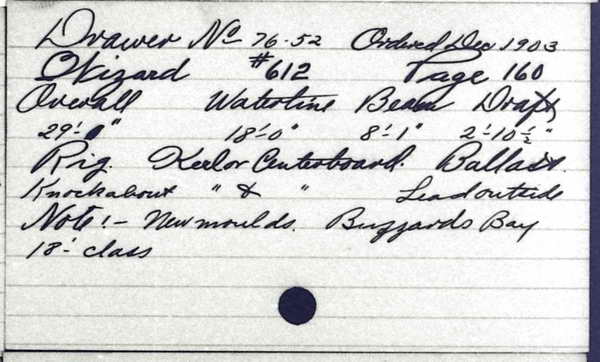 Drawer No 76-52 Ordered Dec 1903
Wizard #612 Page 160
Overall Waterline Beam Draft
29'-0" 18'-0" 8'-1" 2'-10½"
Rig. Keel or Centerboard. Ballast.
Knockabout " & " Lead outside
Note:- New moulds. Buzzards Bay
18' class